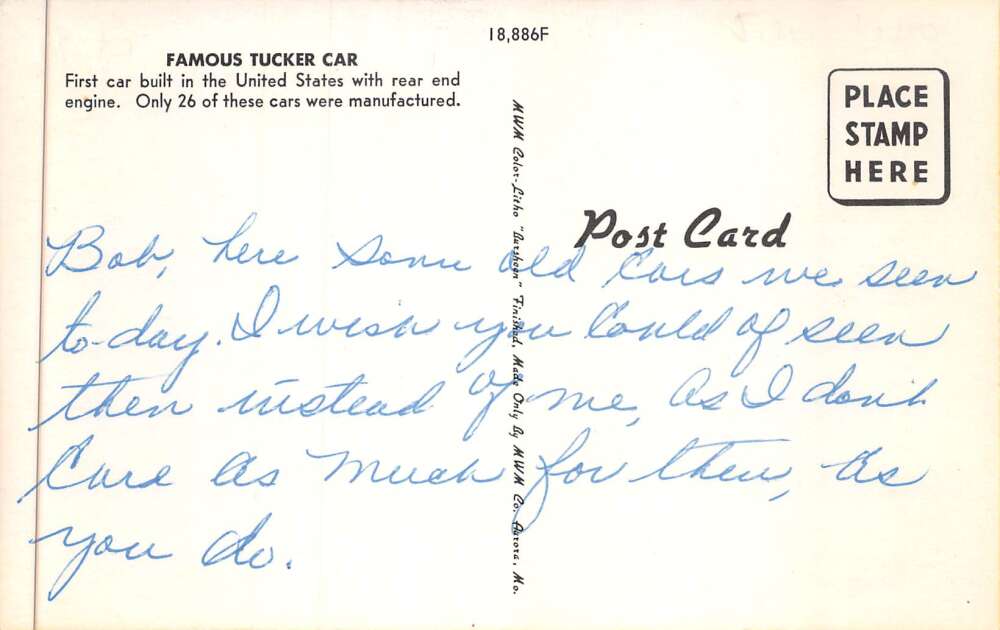 18,886F
FAMOUS TUCKER CAR
First car built in the United States with rear end
engine. Only 26 of these cars were manufactured.
PLACE
STAMP
HERE
Post Card
MWM Color-Litho "Aursheen" Finished. Made Only By MWM Co. Aurora, Mo.
Bob, here some old Cars we seen
to-day. I wish you Could of seen
them instead of me, as I don't
Care as much for them, as
you do.